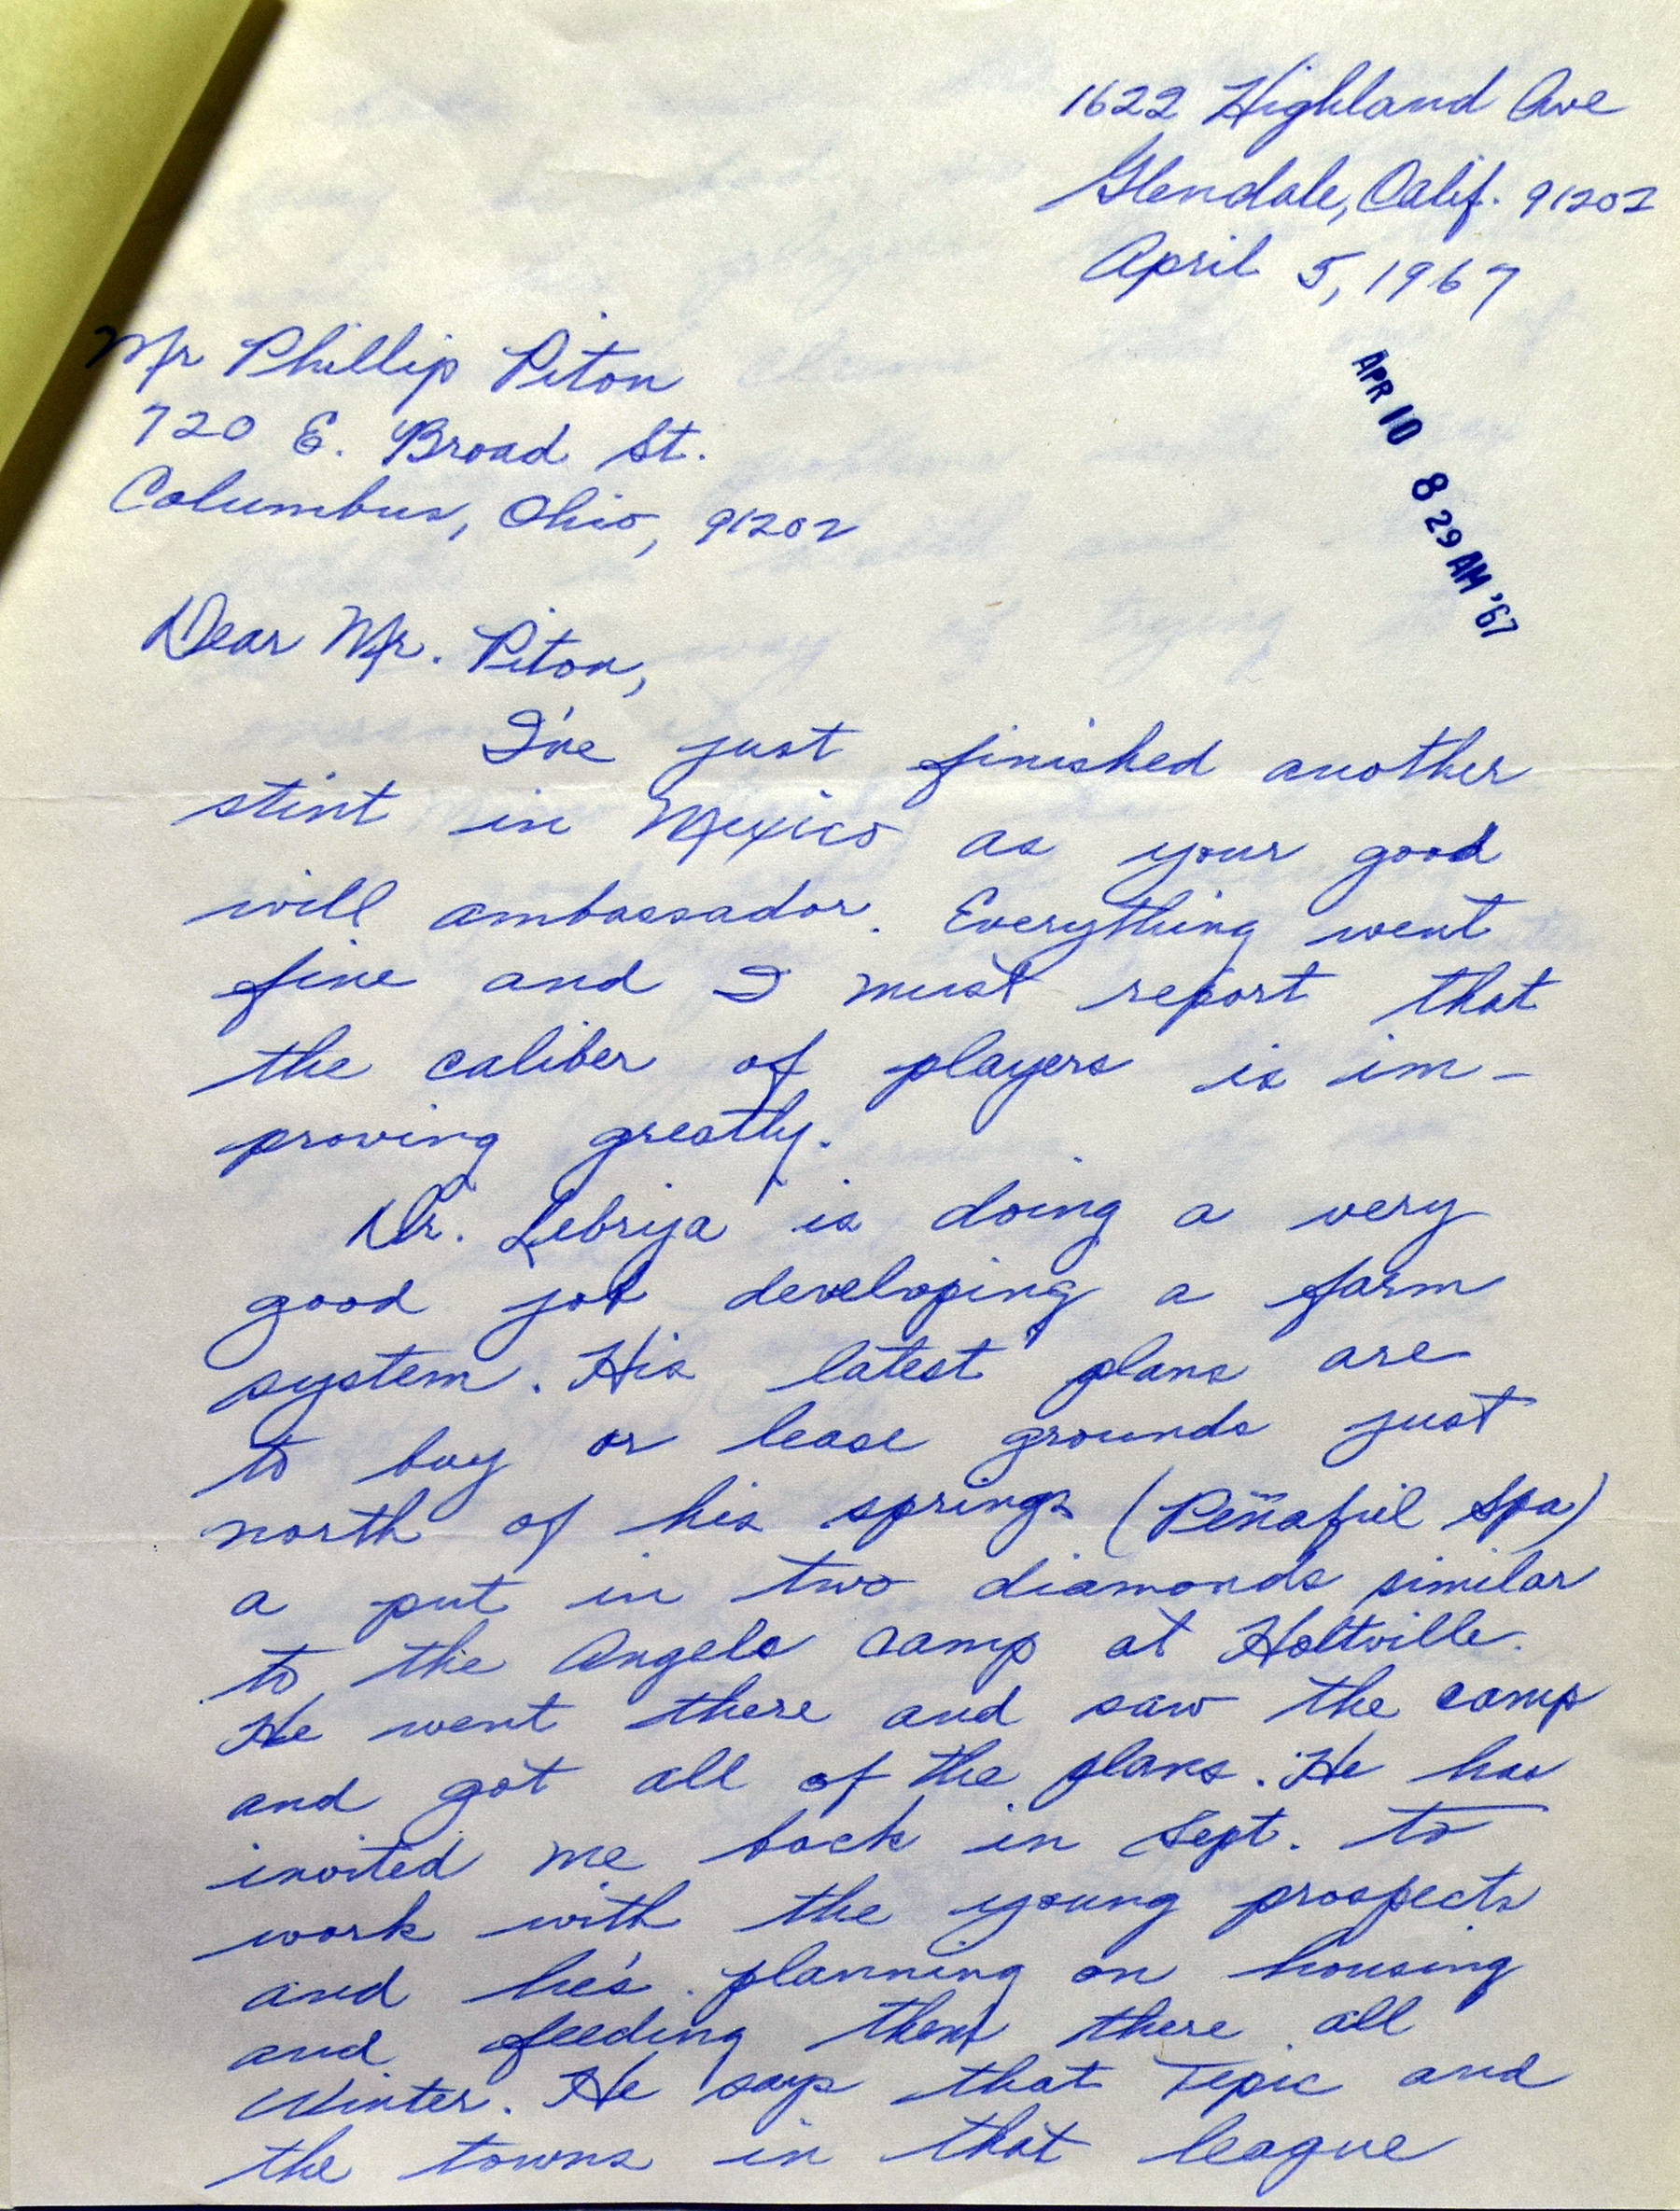 1622 Highland Ave
Glendale, Calif. 91202
April 5, 1967
APR 10 8 29 AM '67
Mr Phillip Piton
720 E. Broad St.
Columbus, Ohio, 91202
Dear Mr. Piton,
I've just finished another
stint in Mexico as your good
will ambassador. Everything went
fine and I must report that
the caliber of players is im-
proving greatly.
Dr. Lebrija is doing a very
good job developing a farm
system. His latest plans are
to buy or lease grounds just
north of his springs (Peñafiel Spa)
a put in two diamonds similar
to the Angels camp at Holtville.
He went there and saw the camp
and got all of the plans. He has
invited me back in Sept. to
work with the young prospects
and he's planning on housing
and feeding them there all
Winter. He says that Tepic and
the towns in that league